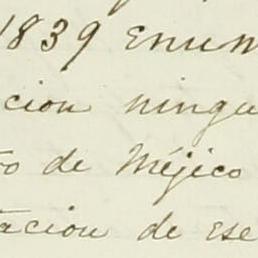 1839 enum
cion ningu
o de Méjico
tacion de ese